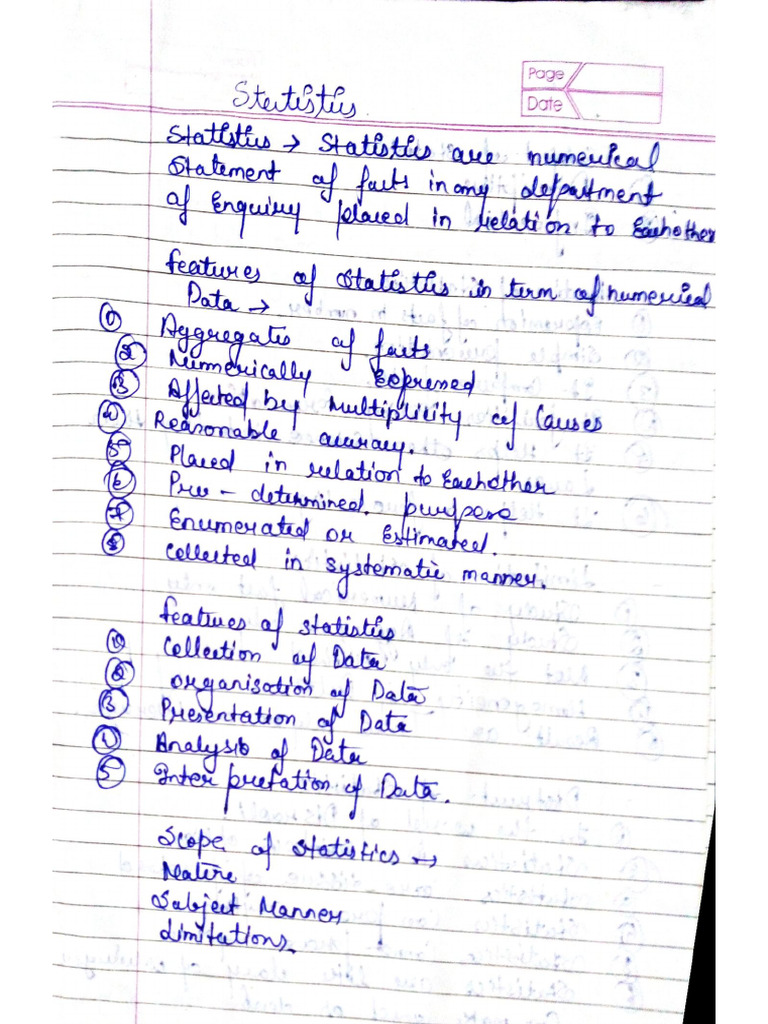 Page
Date
Statistics
Statistics → Statistics are numerical
Statement of facts in any department
of Enquiry placed in relation to Eachother
features of Statistics in term of numerical
Data →
① Aggregates of facts
② Numerically Expressed
③ Affected by Multiplicity of Causes
④ Reasonable accuracy.
⑤ Placed in relation to Eachother
⑥ Pre - determined. purpose
⑦ Enumerated or Estimated.
⑧ Collected in systematic manner.
features of statistics
① Collection of Data
② organisation of Data
③ Presentation of Data
④ Analysis of Data
⑤ Interpretation of Data.
Scope of Statistics →
Nature
Subject Manner
Limitations.